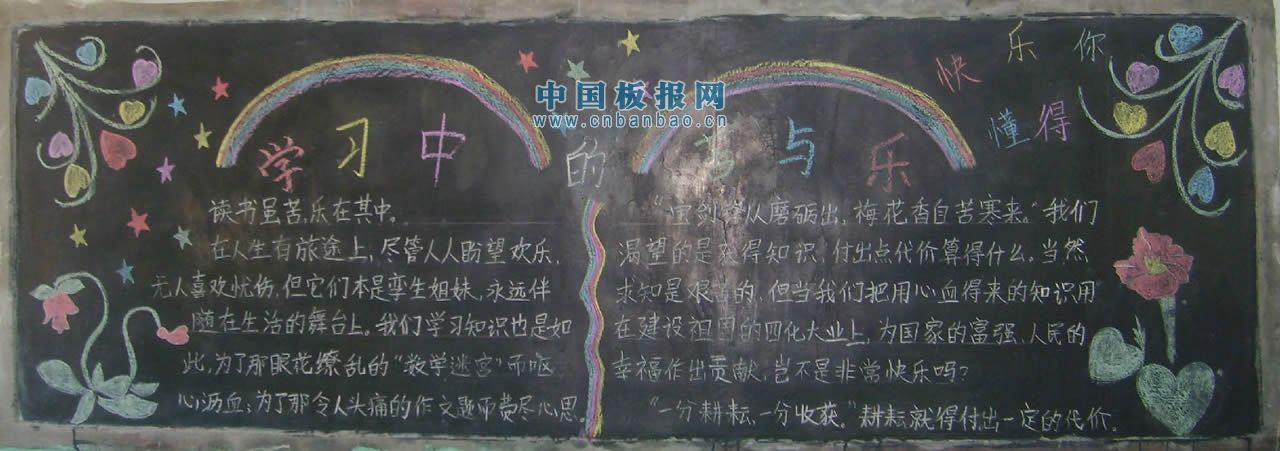 快乐你
懂得
中国板报网
www.cnbanbao.cn
学习中的苦与乐
读书虽苦,乐在其中。
在人生有旅途上,尽管人人盼望欢乐,
无人喜欢忧伤,但它们本是孪生姐妹,永远伴
随在生活的舞台上。我们学习知识也是如
此,为了那眼花缭乱的“数学迷宫”而呕
心沥血;为了那令人头痛的作文题而费尽心思。
“宝剑锋从磨砺出,梅花香自苦寒来。”我们
渴望的是获得知识,付出点代价算得什么。当然,
求知是艰苦的,但当我们把用心血得来的知识用
在建设祖国的四化大业上,为国家的富强、人民的
幸福作出贡献,岂不是非常快乐吗?
“一分耕耘,一分收获。”耕耘就得付出一定的代价。